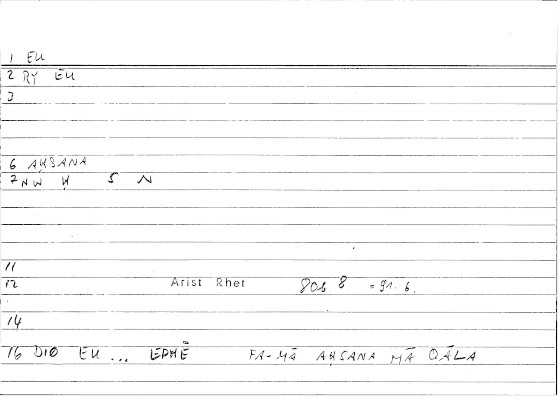 1 EU
2 RY ĒU
3
6 AḤSANA
7 NW Ḥ S N
11
12 Arist Rhet 8 = 91.6.
14
16 DIO EU ... EPHĒ FA-MĀ AḤSANA MĀ QĀLA